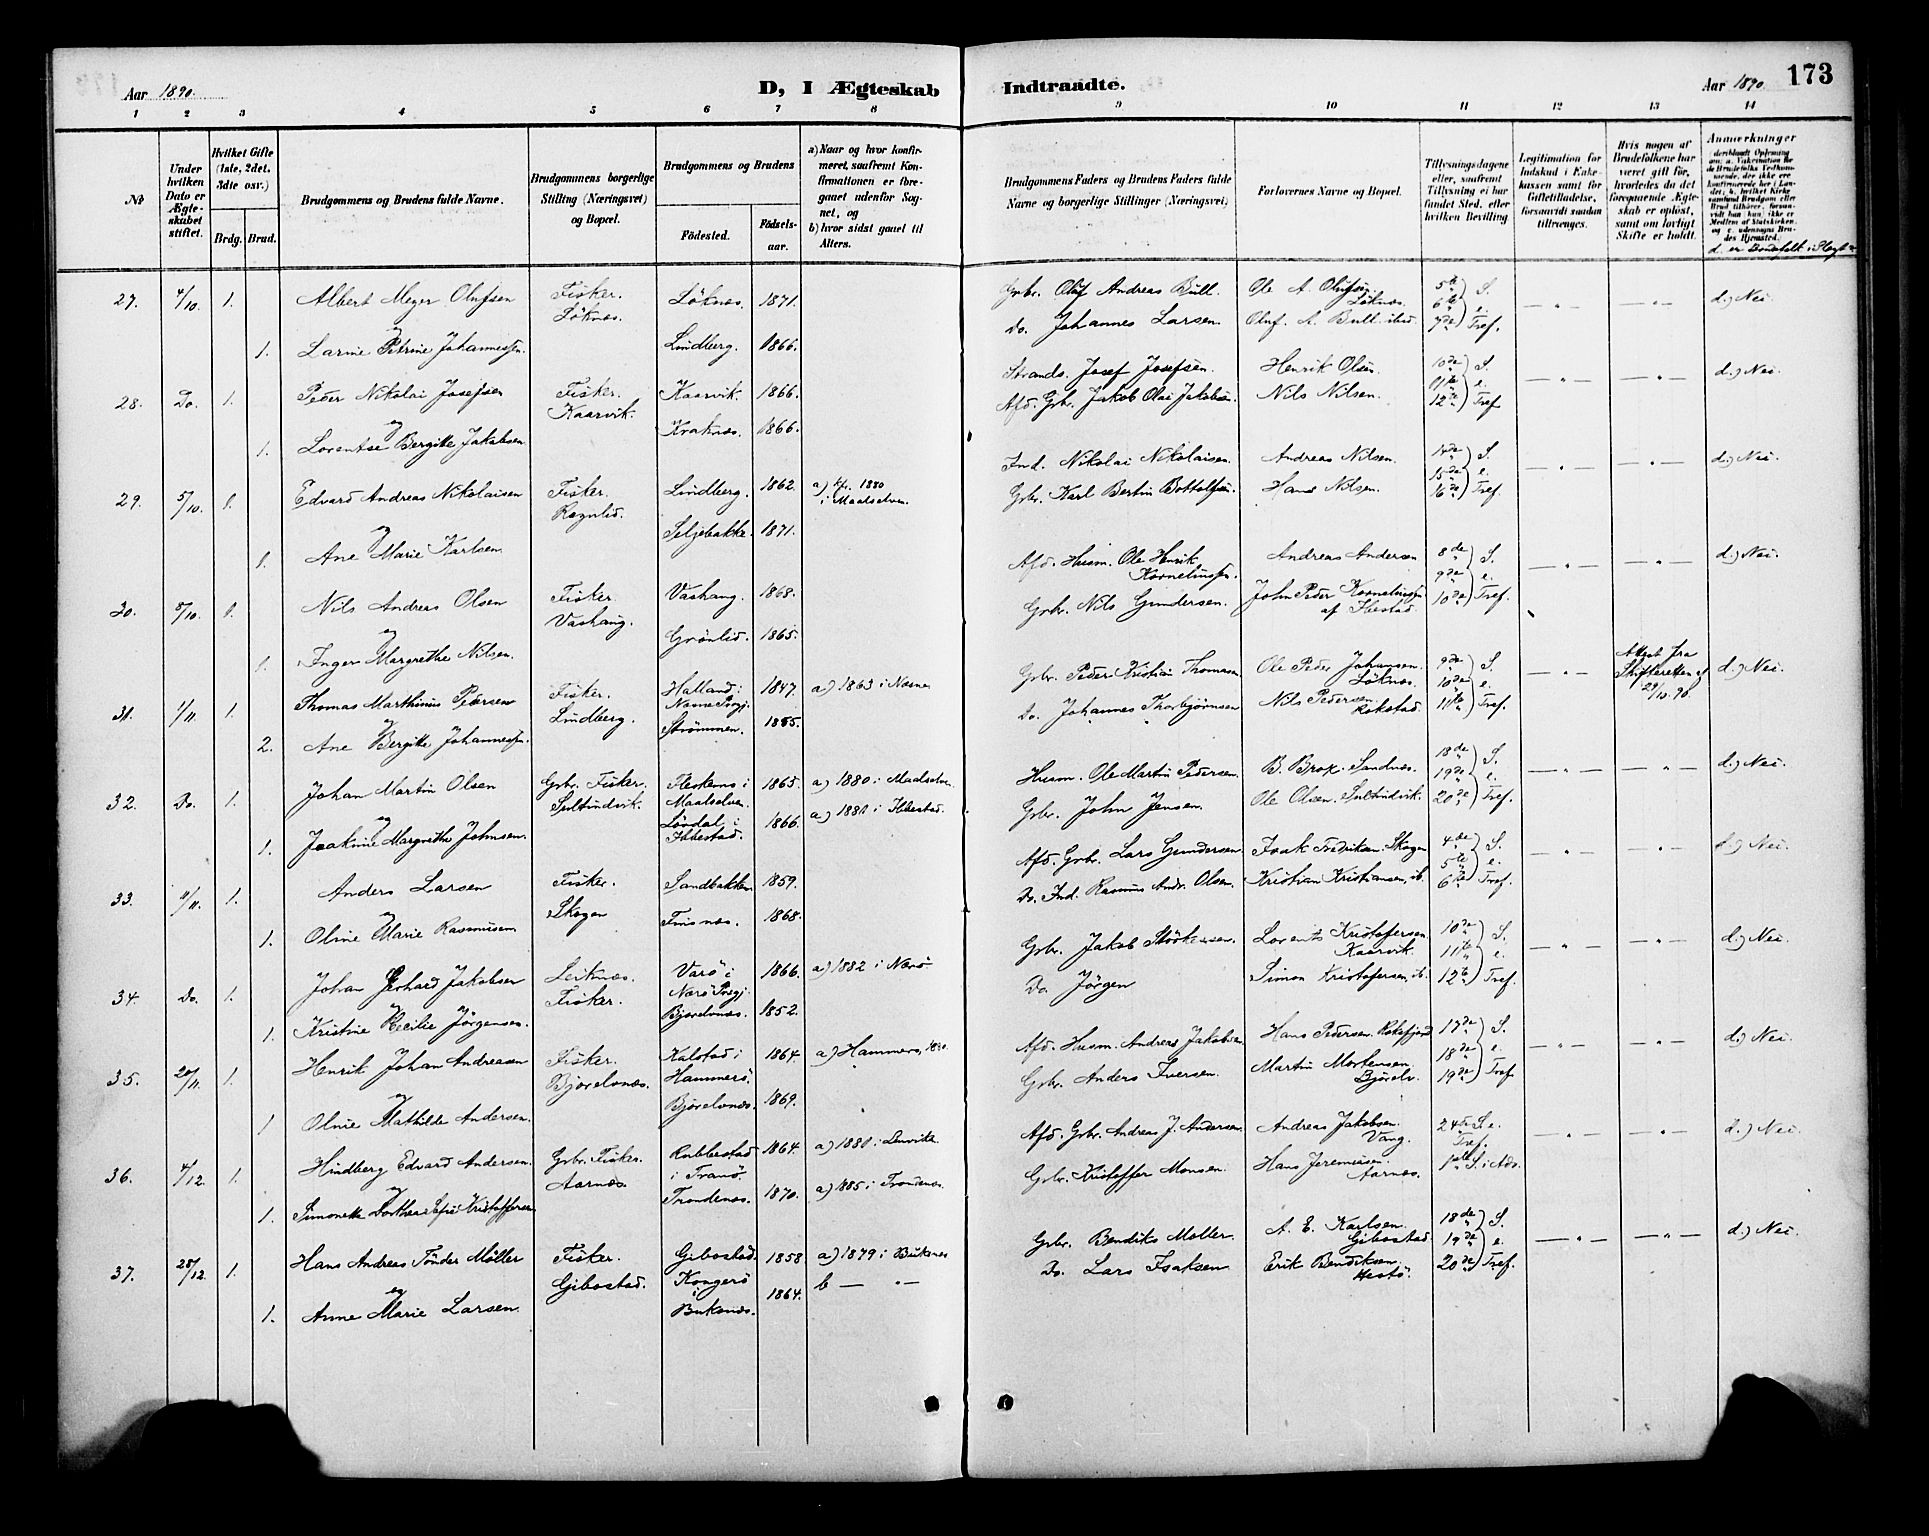 Aar 1890. D, I Ægteskab
1 2 3 4 5 6 7 8
№
Under hvilken Dato er Ægteskabet stiftet.
Hvilket Gifte (1ste, 2det, 3dte osv.)
Brdg. Brud.
Brudgommens og Brudens fulde Navne.
Brudgommens borgerlige Stilling (Næringsvei) og Bopæl.
Brudgommens og Brudens
Fødested. Fødselsaar.
a) Naar og hvor konfirmeret, saafremt Konfirmationen er foregaaet udenfor Sognet, og
b) hvor sidst gaaet til Alters.
27. 4/10. 1. Albert Meyer Olufsen Fisker. Løknæs. Løknæs. 1871.
og
1. Larine Petrine Johannessen. Lindberg. 1866.
28. Do. 1. Peder Nikolai Josefsen Fisker. Kaarvik. Kaarvik. 1866.
og
1. Lorentse Bergitte Jakobsen Kraknæs. 1866.
29. 5/10. 1. Edvard Andreas Nikolaisen Fisker. Lindberg. 1862. a) 1880 i Maalselven.
og
1. Ane Marie Karlsen Seljebakke. 1871.
30. 8/10. 1. Nils Andreas Olsen Fisker Vashaug. Vashaug. 1868.
og
1. Inger Margrethe Nilsen. Grønlid. 1865.
31. 1/11. 1. Thomas Marthinus Pedersen Fisker. Lindberg. Halland i 1847. a) 1863 i
og
2. Ane Bergitte Johannessen. Strømmen. 1855.
32. Do. 1. Johan Martin Olsen Gbr. Fisker. Sultindvik. i Maalselven 1865. a) 1880 i Maalselven
og
1. Joakine Margrethe Johnsen. Løvdal i Ibbestad. 1866. a) 1881 i Ibbestad.
33. 11/11. 1. Anders Larsen Fisker. Skogen Sandbakken 1859.
og
1. Oline Marie Rasmussen Finsnæs. 1868.
34. Do. 1. Johan Gerhard Jakobsen Leiknæs. Fisker. Varø i Nærø Prgj. 1866. a) 1882 i Nærø
og
1. Kristine Cecilie Jørgensen. Bjørelvnæs. 1852.
35. 20/11. 1. Henrik Johan Andreasen Fisker. Bjørelvnæs. Kalstad i Hammerø. 1864. a) Hammerø,
og
1 Oline Mathilde Andersen. Bjørelvnæs. 1869.
36. 4/12. 1. Hindberg Edvard Andersen. Gbr. Fisker. Aarnæs. Rubbestad i Tranø. 1864. a) 1881 i Lenvik.
og
1. Simonette Dorthea Kristoffersen Trondenæs. 1870. a) 1885 i Trondenæs.
37. 28/12. 1. Hans Andreas Tønder Møller Fisker. Gibostad. Gibostad 1858 a) 1879 i Buksnæs
og
1. Anne Marie Larsen. Kongerø i Buksnæs. 1864. b — " —
Indtraadte. Aar 1890. 173
9 10 11 12 13 14
Brudgommens Faders og Brudens Faders fulde Navne og borgerlige Stillinger (Næringsvei)
Forlovernes Navne og Bopæl.
Tillysningsdagene eller, saafremt Tillysning ei har fundet Sted, efter hvilken Bevilling.
Legitimation for Indskud i Enkekassen samt for Giftetilladelse, forsaavidt saadan tiltrænges.
Hvis nogen af Brudefolkene har været gift før, hvorledes da det foregaaende Ægteskab er opløst, samt om lovligt Skifte er holdt.
Anmerkninger
Gbr. Oluf Andreas Bull. Ole A. Olufsen, Løknæs. 5te 6te 7de S. e. Tref. — " — — " — d.) Nei.
Do. Johannes Larsen. Oluf A. Bull. ibid.
Strands. Josef Josefsen. Henrik Olsen. 10de 11te 12te S. e. Tref — " — — " — d.) Nei.
Afd. Gbr. Jakob Olai Jakobsen. Nils Nilsen.
Ind. Nikolai Nikolaisen. Andreas Nilsen. 14de 15de 16de S. e. Tref. — " — — " — d.) Nei.
Gbr. Karl Bertin Bottolfsen. Hans Nilsen.
Afd. Husm. Ole Henrik Korneliussen. Andreas Andersen 8de 9de 10de S. e. Tref. — " — — " — d.) Nei.
Gbr. Nils Gundersen. John Peder Korneliussen af Ibestad.
Gbr. Peder Kristian Thomasen Ole Peder Johansen. Løknæs. 9de 10de 11te S. e. Tref. — " — Attest fra Skifteretten af 29/10. 90. d.) Nei.
Do. Johannes Thorbjørnsen Nils Pedersen. Rokstad.
Husm. Ole Martin Pedersen. B. Brox. Sandnæs. 18de 19de 20de S. e. Tref. — " — — " — d.) Nei.
Gbr. John Jensen. Ole Olsen. Sultindvik.
Afd. Gbr. Lars Gundersen Isak Fredriksen. Skogen 4de 5te 6te S. e. Tref. — " — — " — d.) Nei.
Do. Ind. Rasmus Andr. Olsen. Kristian Kristiansen, ib.
Gbr. Jakob Lorents Kristofersen Kaarvik. 10de 11te 12te S. e. Tref. — " — — " — d.) Nei.
Do. Jørgen Simon Kristofersen, ib.
Afd. Husm. Andreas Jakobsen. Hans Pedersen. Roksfjord 17de 18de 19de S. e. Tref. — " — — " — d.) Nei.
Gbr. Anders Iversen. Martin Mortensen Bjørelv.
Afd. Gbr. Andreas J. Andersen. Andreas Jakobsen. Vang. 24de S. e. Tref. — " — — " — d.) Nei.
Gbr. Kristoffer Monsen. Hans Jeremiasen. Aarnæs. 1ste S. i Adv.
Gbr. Bendiks Møller. A. E. Karlsen. Gibostad 18de 19de 20de S. e. Tref. — " — — " — d.) Nei.
Do. Lars Isaksen. Erik Bendiksen. Hestø.